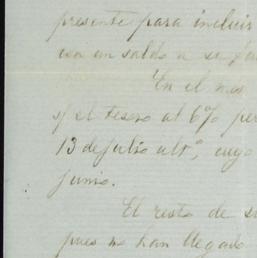 presente para incluir
con un saldo a su fa
En el mes
s/ el tesoro al 6% per
13 de julio ulto, cuyo
junio.
El resto de su
pues no han llegado